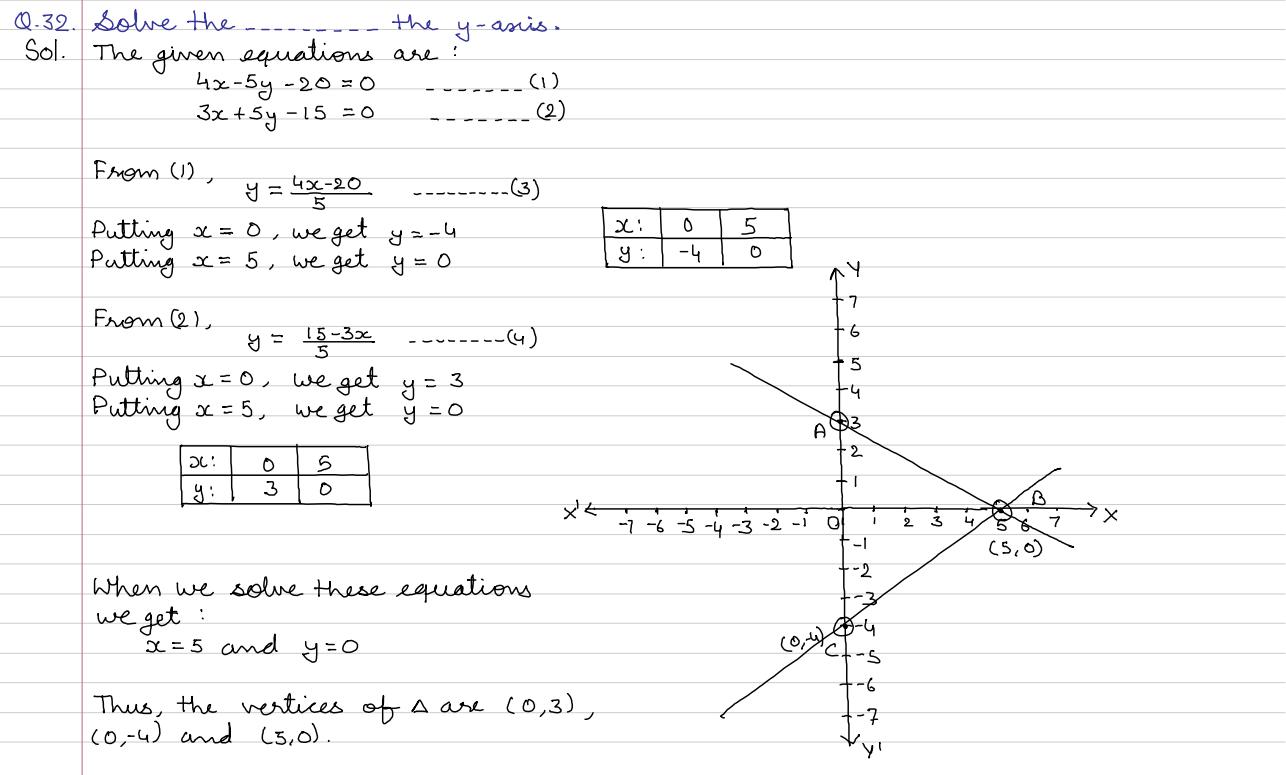 Q.32. Solve the --------- the y-axis.
Sol. The given equations are :
4x-5y-20=0 ------- (1)
3x+5y-15=0 ------- (2)
From (1),
y = 4x-20/5 --------- (3)
Putting x=0, we get y=-4
Putting x=5, we get y=0
x: 0 5
y: -4 0
From (2),
y = 15-3x/5 -------- (4)
Putting x=0, we get y=3
Putting x=5, we get y=0
x: 0 5
y: 3 0
When we solve these equations
we get :
x=5 and y=0
Thus, the vertices of Δ are (0,3),
(0,-4) and (5,0).
Y
7
6
5
4
A 3
2
1
B
X' -7 -6 -5 -4 -3 -2 -1 0 1 2 3 4 5 6 7 X
(5,0)
-1
-2
-3
(0,-4) -4
C -5
-6
-7
Y'